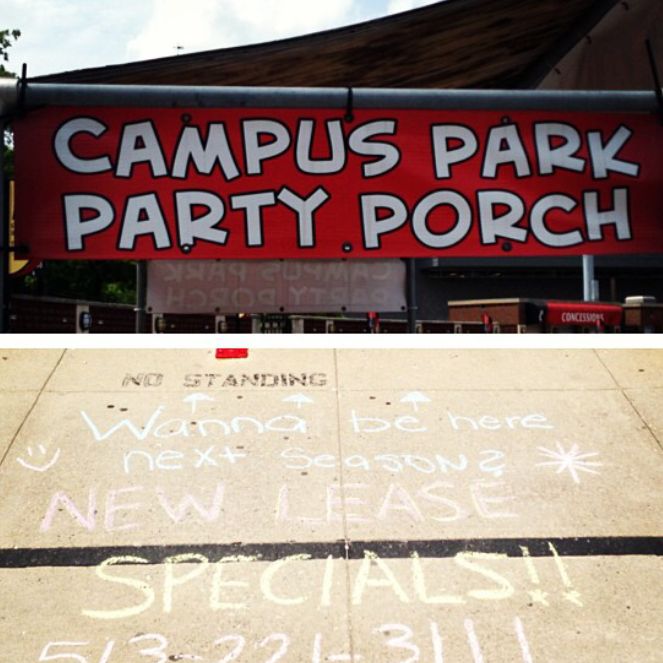 CAMPUS PARK
PARTY PORCH
CAMPUS PARK
PARTY PORCH
CONCESSIONS
NO STANDING
Wanna be here
next Season?
NEW LEASE
SPECIALS!!
513-221-3111